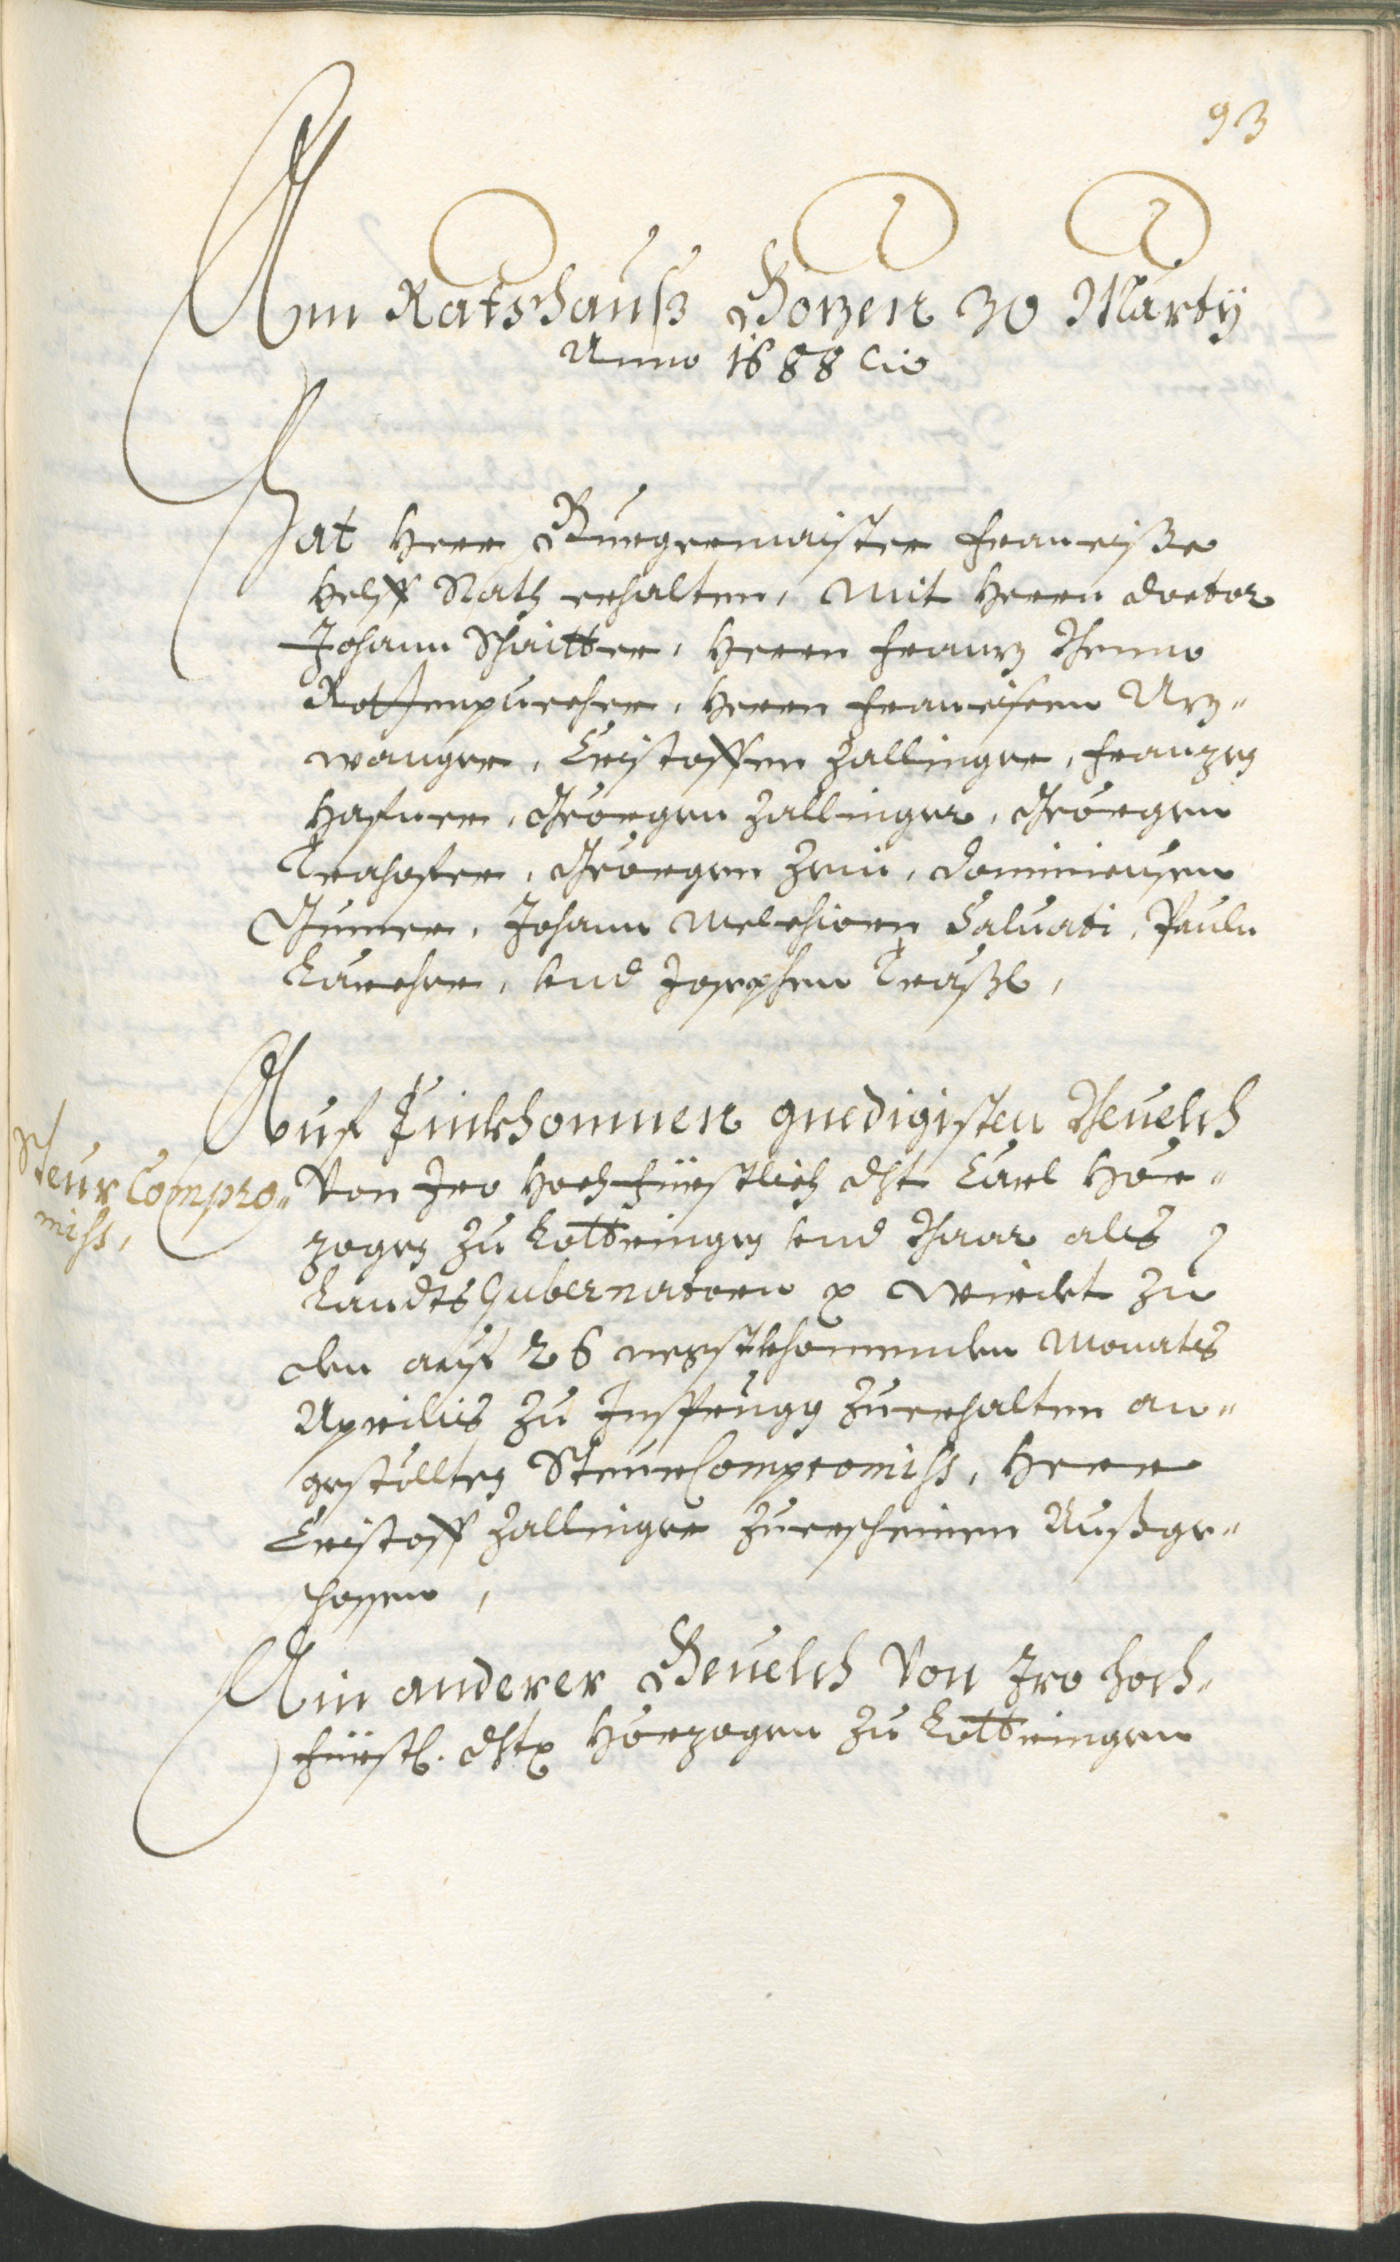 93
Am Ratshauß Bozen 30 Marty
Anno 1688
Hat Herr Burgermaister Francißc
Helff Rath erhalten, mit Herrn doctor
Johann Schaitter, Herrn Franz Thomo
Rottenpurcher, Herrn Franciscen Atz-
wanger, Cristoffen Zallinger, Franzen
Hafner, Georgen Zallinger, Georgen
Trahofer, Georgen Zeni, Dominicusen
Gumer, Johann Melchiorn Saluati, Pauln
Larcher, vnd Josephen Traßl,
Steur Compro-
miss,
Auf Einkhomnen gnedigisten Beuelch
Von Iro Hochfürstlich dht Carl Hör-
zogen zu Lottringen vnd Baar als
Landts Gubernatorn wirdet zu
den auf 26 negstkhommenden Monats
Aprillis zu Insprugg zuerhalten an-
gestöllten Steur Compromiss, Herr
Cristoff Zallinger zuerscheinen Außge-
schossen,
Ain anderer Beuelch Von Iro hoch-
fürstl. dht Hörzogen zu Lottringen